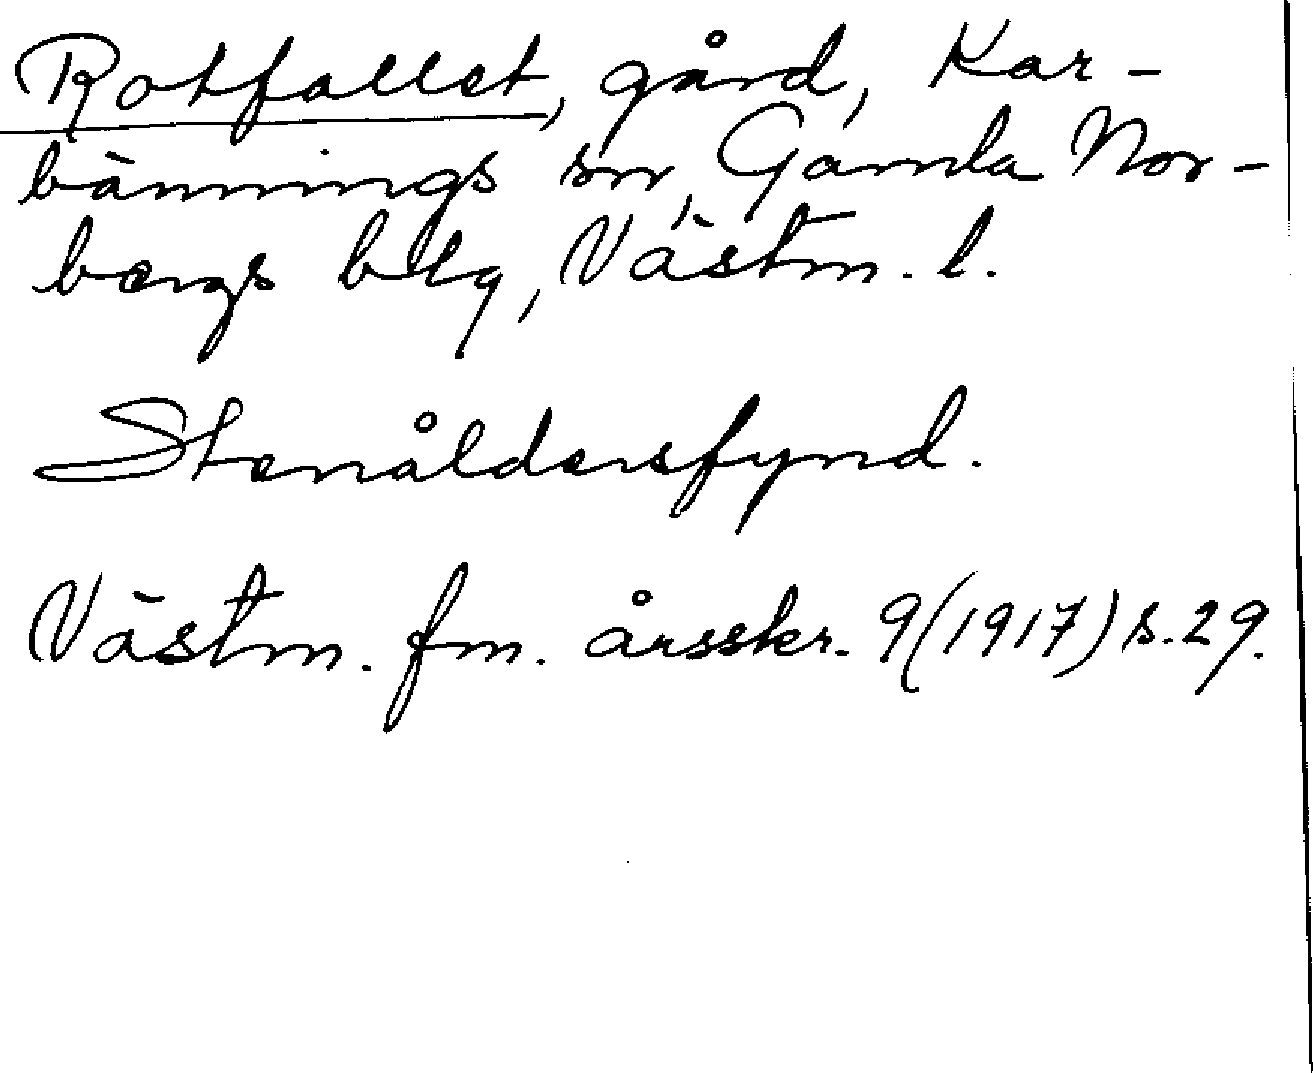 Rotfallet, gård, Kar-
bännings sn, Gamla Nor-
bergs blg, Västm. l.
Stenåldersfynd.
Västm. fm. årsskr. 9(1917) s. 29.